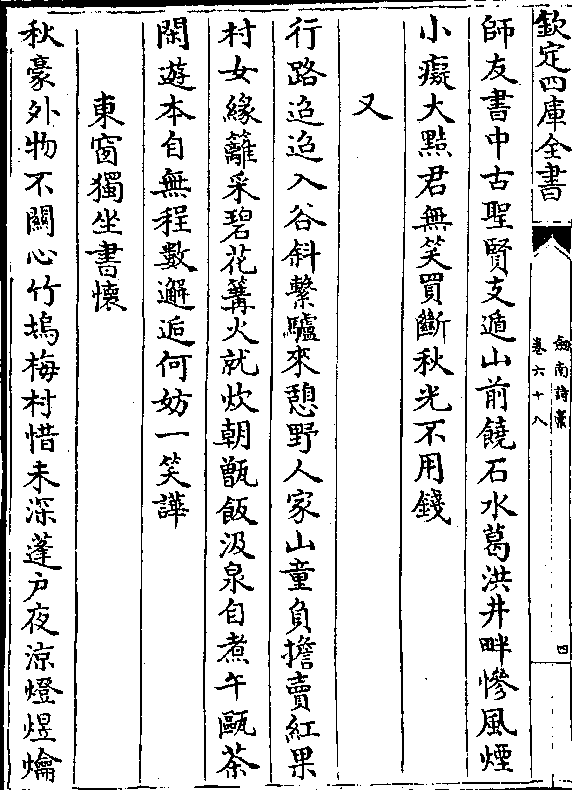 欽定四庫全書
劍南詩稾
卷六十八
四
師友書中古聖賢支遁山前饒石水葛洪井畔慘風煙
小癡大黠君無笑買斷秋光不用錢
又
行路迢迢入谷斜繫驢來憩野人家山童負擔賣紅果
村女緣籬采碧花篝火就炊朝甑飯汲泉自煮午甌茶
閑遊本自無程數邂逅何妨一笑譁
東窗獨坐書懷
秋豪外物不關心竹塢梅村惜未深蓬户夜涼燈煜爚